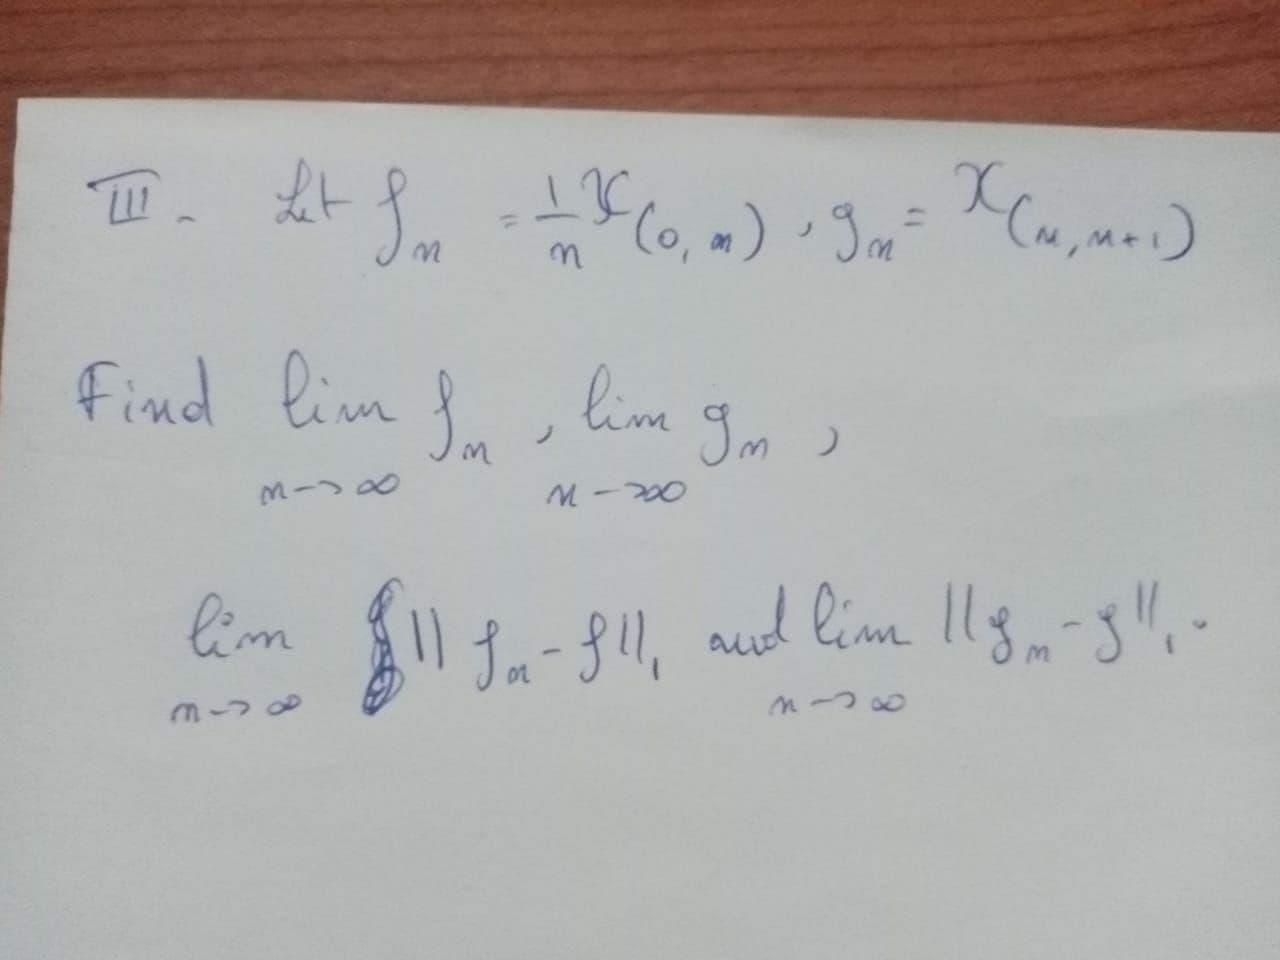 III - Let fn = 1/n χ(0, n), gn = χ(n, n+1)
Find lim n→∞ fn, lim n→∞ gn,
lim n→∞ || fn - f ||1 and lim n→∞ || gn - g ||1.